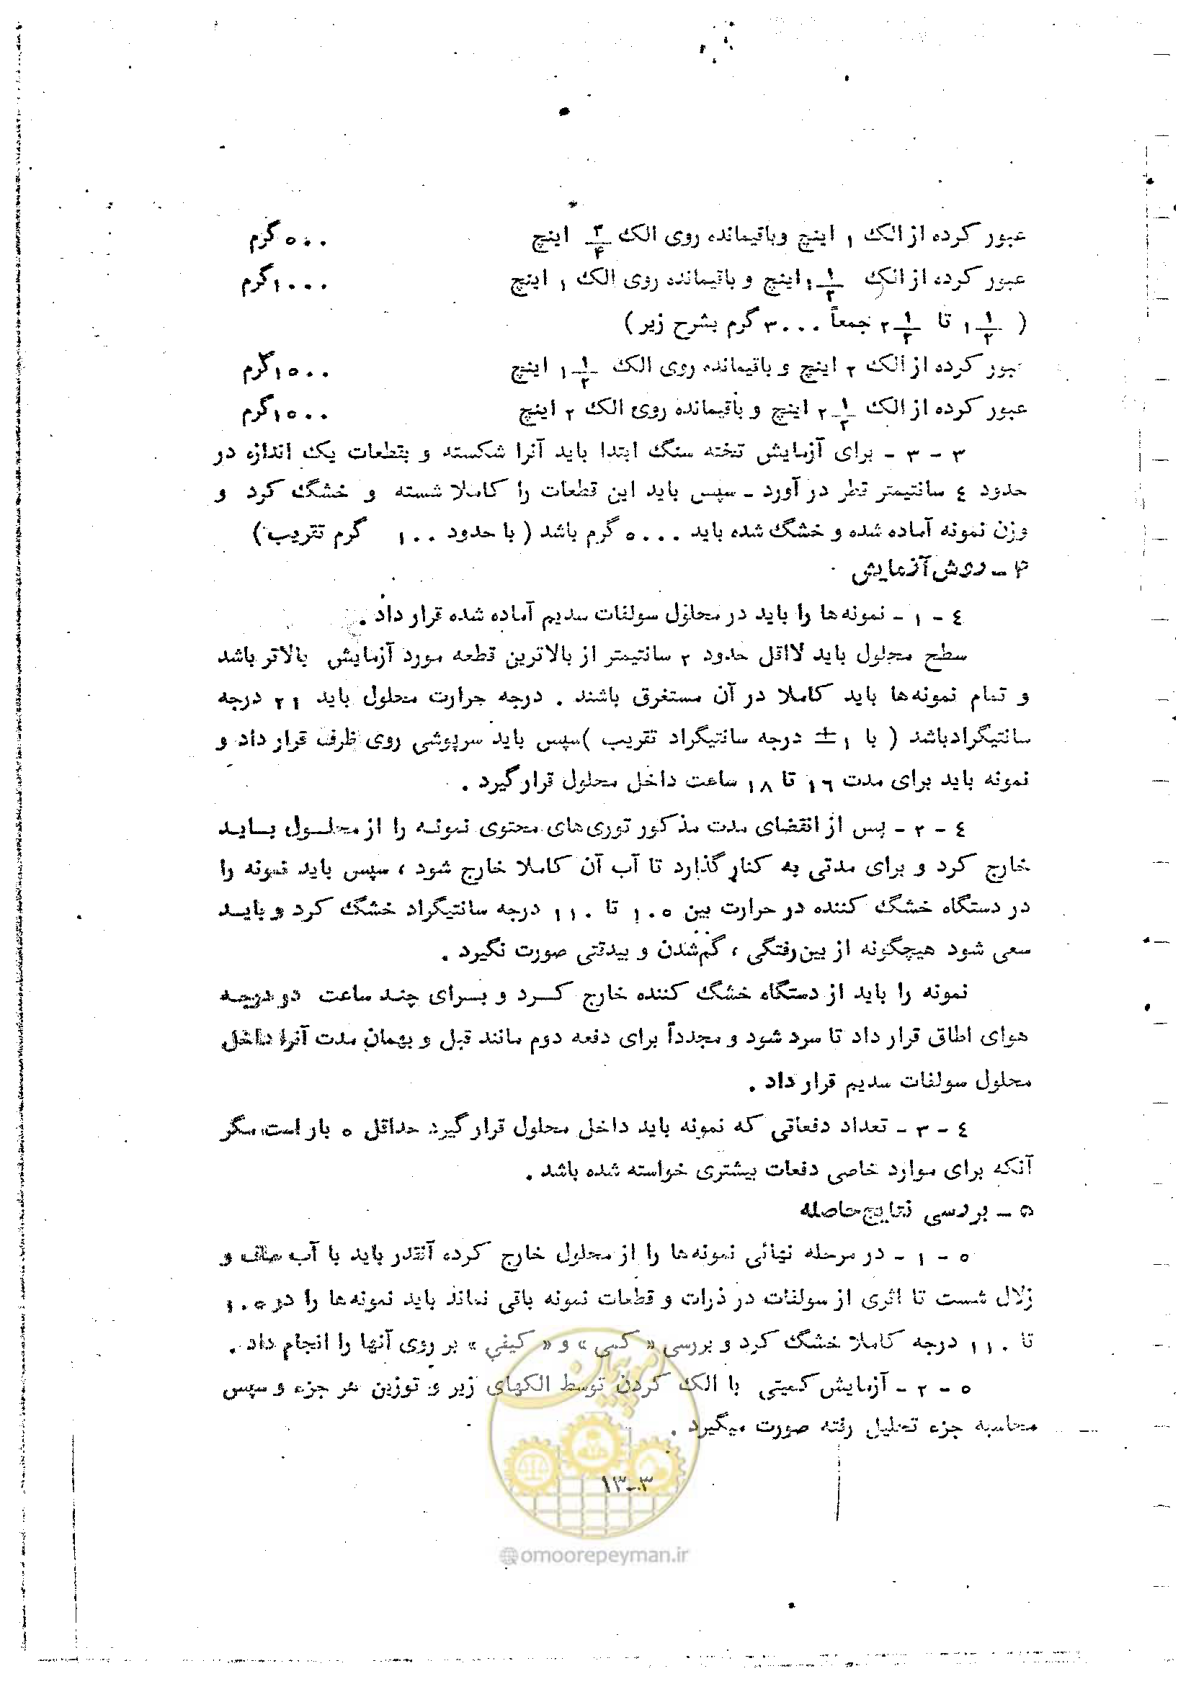 عبور کرده از الک ۱ اینچ و باقیمانده روی الک ۳/۴ اینچ ۵۰۰ گرم
عبور کرده از الک ۱ ۱/۲ اینچ و باقیمانده روی الک ۱ اینچ ۱۰۰۰ گرم
( ۱ ۱/۲ تا ۲ ۱/۲ جمعاً ۳۰۰۰ گرم بشرح زیر )
عبور کرده از الک ۲ اینچ و باقیمانده روی الک ۱ ۱/۲ اینچ ۱۵۰۰ گرم
عبور کرده از الک ۲ ۱/۲ اینچ و باقیمانده روی الک ۲ اینچ ۱۵۰۰ گرم
۳ - ۳ - برای آزمایش تخته سنگ ابتدا باید آنرا شکسته و بقطعات یک اندازه در
حدود ٤ سانتیمتر قطر در آورد ـ سپس باید این قطعات را کاملا شسته و خشگ کرد و
وزن نمونه آماده شده و خشگ شده باید ۵۰۰۰ گرم باشد ( با حدود ۱۰۰ گرم تقریب )
۴ ـ روش آزمایش
٤ - ۱ - نمونه‌ها را باید در محلول سولفات سدیم آماده شده قرار داد .
سطح محلول باید لااقل حدود ۲ سانتیمتر از بالاترین قطعه مورد آزمایش بالاتر باشد
و تمام نمونه‌ها باید کاملا در آن مستغرق باشند . درجه حرارت محلول باید ۲۱ درجه
سانتیگراد باشد ( با ۱ ± درجه سانتیگراد تقریب ) سپس باید سرپوشی روی ظرف قرار داد و
نمونه باید برای مدت ۱٦ تا ۱۸ ساعت داخل محلول قرار گیرد .
٤ - ۲ - پس از انقضای مدت مذکور توری‌های محتوی نمونه را از محلول باید
خارج کرد و برای مدتی به کنار گذارد تا آب آن کاملا خارج شود ، سپس باید نمونه را
در دستگاه خشگ کننده در حرارت بین ۱۰۵ تا ۱۱۰ درجه سانتیگراد خشگ کرد و باید
سعی شود هیچگونه از بین‌رفتگی ، گم‌شدن و بیدقتی صورت نگیرد .
نمونه را باید از دستگاه خشگ کننده خارج کرد و برای چند ساعت در درجه
هوای اطاق قرار داد تا سرد شود و مجدداً برای دفعه دوم مانند قبل و بهمان مدت آنرا داخل
محلول سولفات سدیم قرار داد .
٤ - ۳ - تعداد دفعاتی که نمونه باید داخل محلول قرار گیرد حداقل ۵ بار است مگر
آنکه برای موارد خاصی دفعات بیشتری خواسته شده باشد .
۵ ـ بررسی نتایج حاصله
۵ - ۱ - در مرحله نهائی نمونه‌ها را از محلول خارج کرده آنقدر باید با آب صاف و
زلال شست تا اثری از سولفات در ذرات و قطعات نمونه باقی نماند باید نمونه‌ها را در ۱۰۵
تا ۱۱۰ درجه کاملا خشگ کرد و بررسی « کمی » و « کیفی » بر روی آنها را انجام داد .
۵ - ۲ - آزمایش کمیتی با الک کردن توسط الکهای زیر و توزین هر جزء و سپس
محاسبه جزء تحلیل رفته صورت میگیرد .
۱۳-۳
امور پیمان
@omoorepeyman.ir